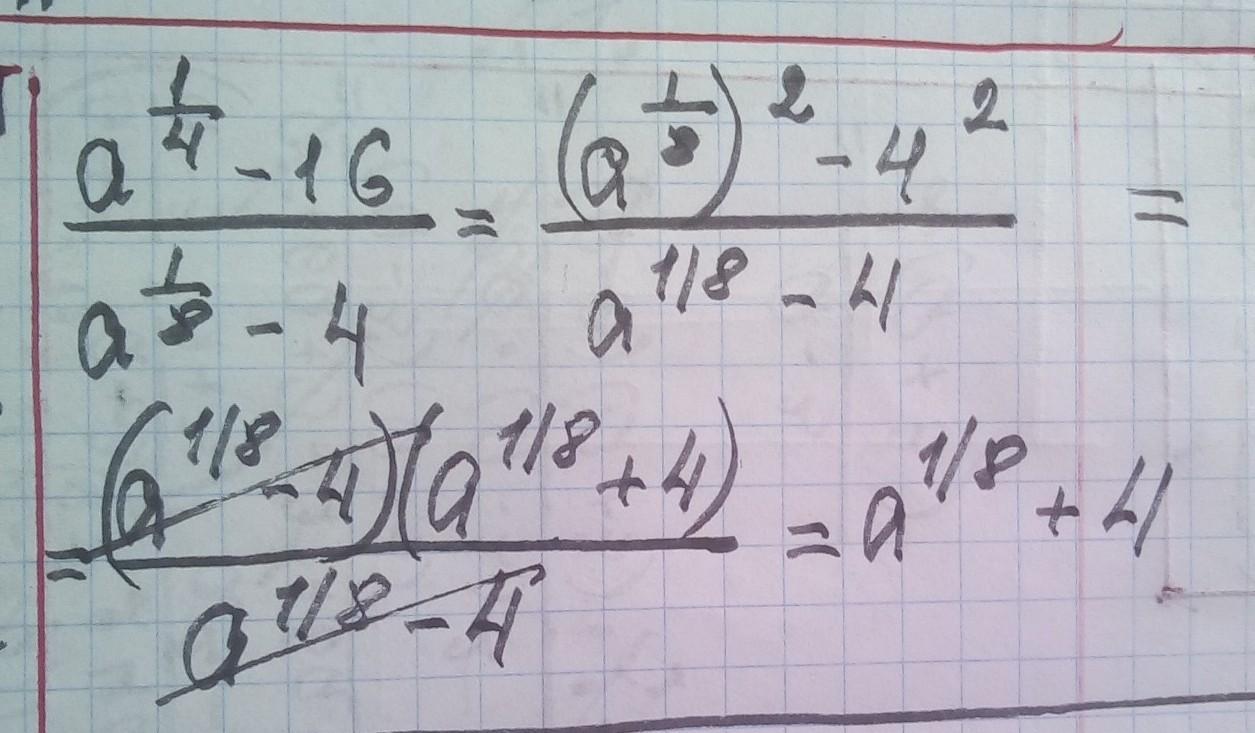 (a^{\frac{1}{4}} - 16) / (a^{\frac{1}{8}} - 4) = ((a^{\frac{1}{8}})^2 - 4^2) / (a^{1/8} - 4) =
= ((a^{1/8} - 4)(a^{1/8} + 4)) / (a^{1/8} - 4) = a^{1/8} + 4